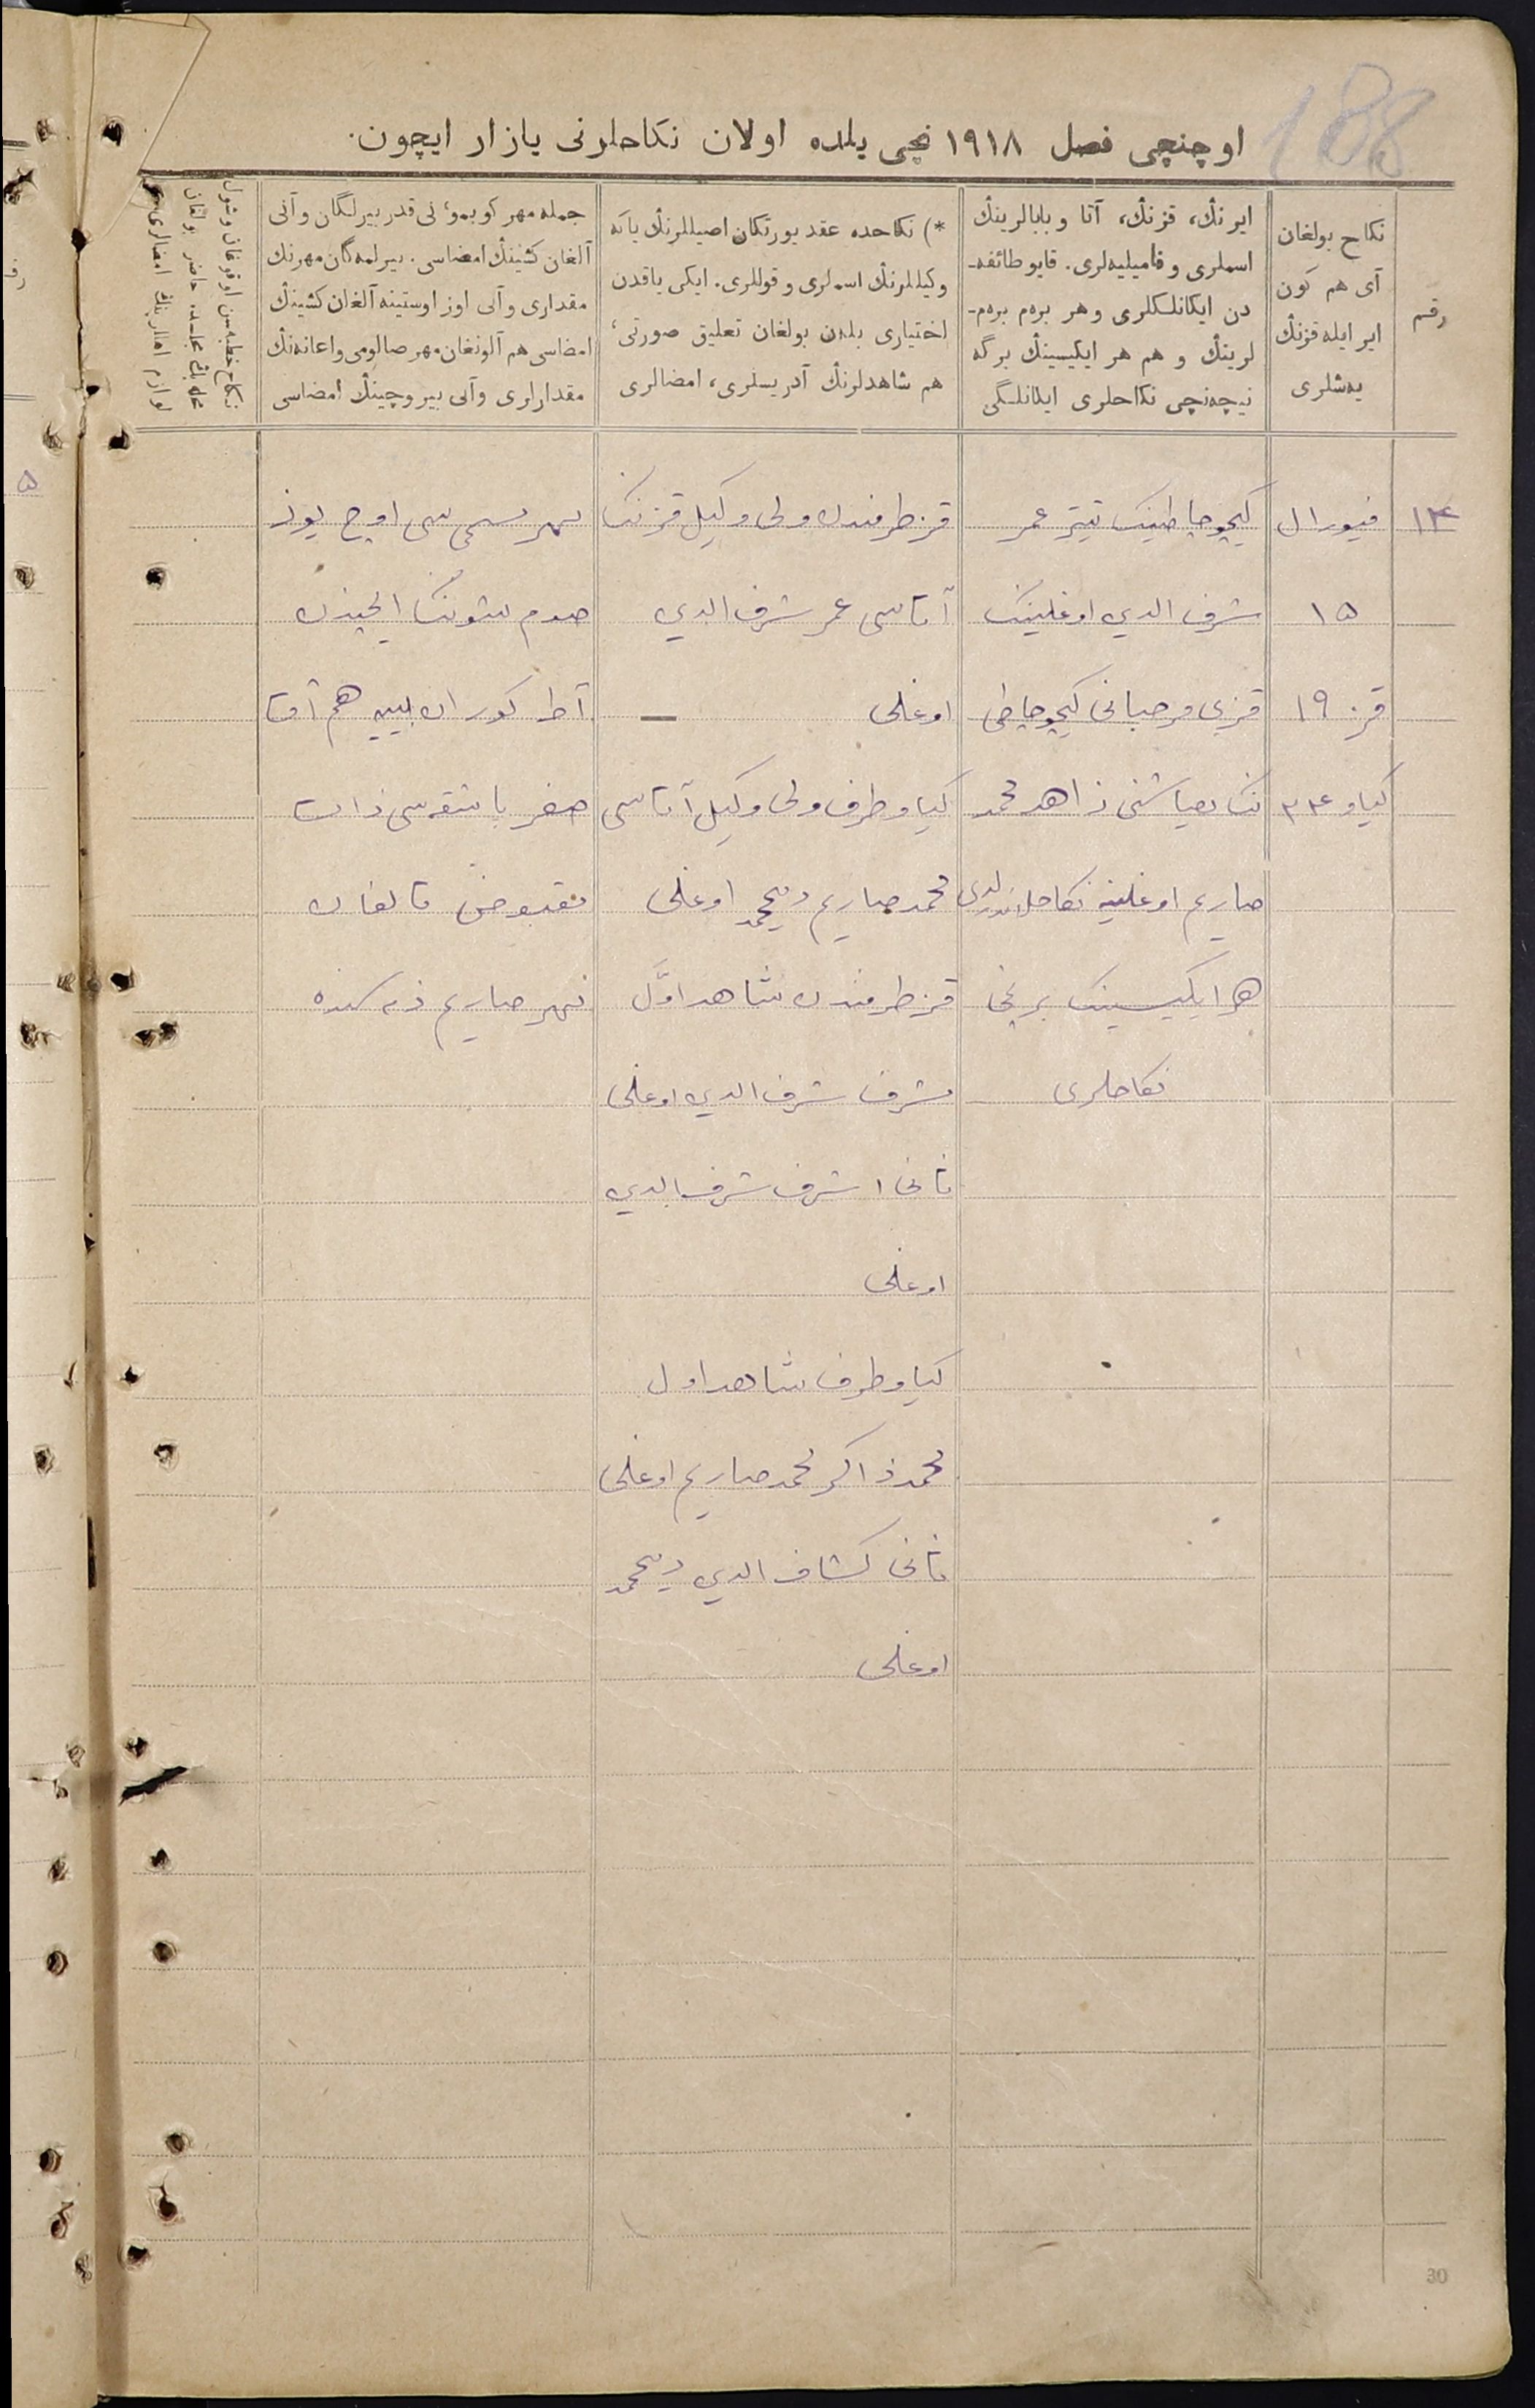 188
اوچنچی فصل ۱۹۱۸ نچی یلده اولان نکاحلرنی یازار ایچون.
رقم
نکاح بولغان
آی هم کون
ایر ایله قزنڭ
یەشلری
ایرنڭ، قزنڭ، آتا و بابالرینڭ
اسملری و فامیلیەلری. قایو طائفە-
دن ایکانلکلری و هر برەم برەم-
لرینڭ و هم هر ایکیسینڭ برگه
نیچەنچی نکاحلری ایکانلگی
*) نکاحده عقد یورتکان اصیللرنڭ یاکه
وکیللرنڭ اسملری و قوللری. ایکی یاقدن
اختیاری بلەن بولغان تعلیق صورتی،
هم شاهدلرنڭ آدریسلری، امضالری
جمله مهر کوبمو، نی قدر بیرلگان و آنی
آلغان کشینڭ امضاسی. بیرلمەگان مهرنڭ
مقداری و آنی اوز اوستینه آلغان کشینڭ
امضاسی هم آلونغان مهر صالومی و اعانەنڭ
مقدارلری و آنی بیروچینڭ امضاسی
نکاح خطبەسن اوقوغان و شول
مجلسده حاضر بولغان
لوازم اهلرینڭ امضالری
۱۴
فیورال
۱۵
قز ۱۹
کیاو ۲۴
کیچوچاطینک تیتر عمر
شرف الدین اوغلینک
قزی مرحبانی کیچوچاطی
ننک یعیاشنی ذاهد محمد
صاریم اوغلینه نکاحلاندردی
هر ایکیسینک برنچی
نکاحلری
قز طرفندن ولی وکیل قزننک
آتاسی عمر شرف الدین
اوغلی —
کیاو طرف ولی وکیل آتاسی
محمد صاریم دیمحمد اوغلی
قز طرفندن شاهد اوّل
مشرف شرف الدین اوغلی
ثانی اشرف شرف الدین
اوغلی
کیاو طرف شاهد اول
محمد ذاکر محمد صاریم اوغلی
ثانی کشاف الدین دیمحمد
اوغلی
مهر مسمی سی اوچ یوز
صوم شوننک ایچیندن
آط کوران بییه هم آقتا
باشقه سی ذات
مقبوض قالغان
مهر صاریم ذمه سنده
30